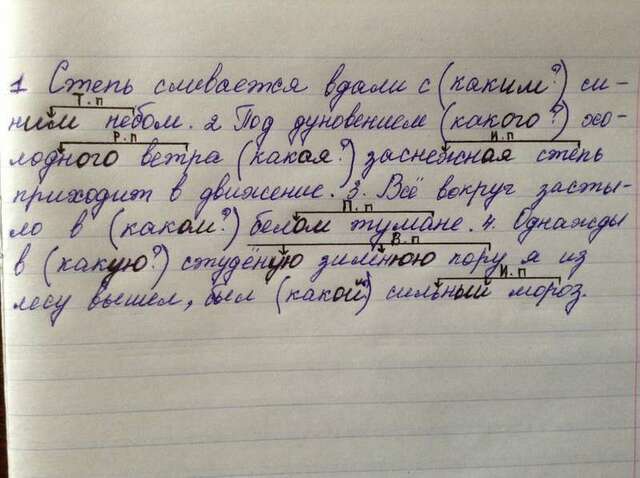 1 Степь сливается вдали с (каким?) си-
Т. п
ним небом. 2 Под дуновением (какого?) хо-
Р. п И. п
лодного ветра (какая?) заснежная степь
приходит в движение. 3. Всё вокруг засты-
П. п
ло в (каком?) белом тумане. 4. Однажды
В. п
в (какую?) студёную зимнюю пору я из
И. п
лесу вышел, был (какой?) сильный мороз.